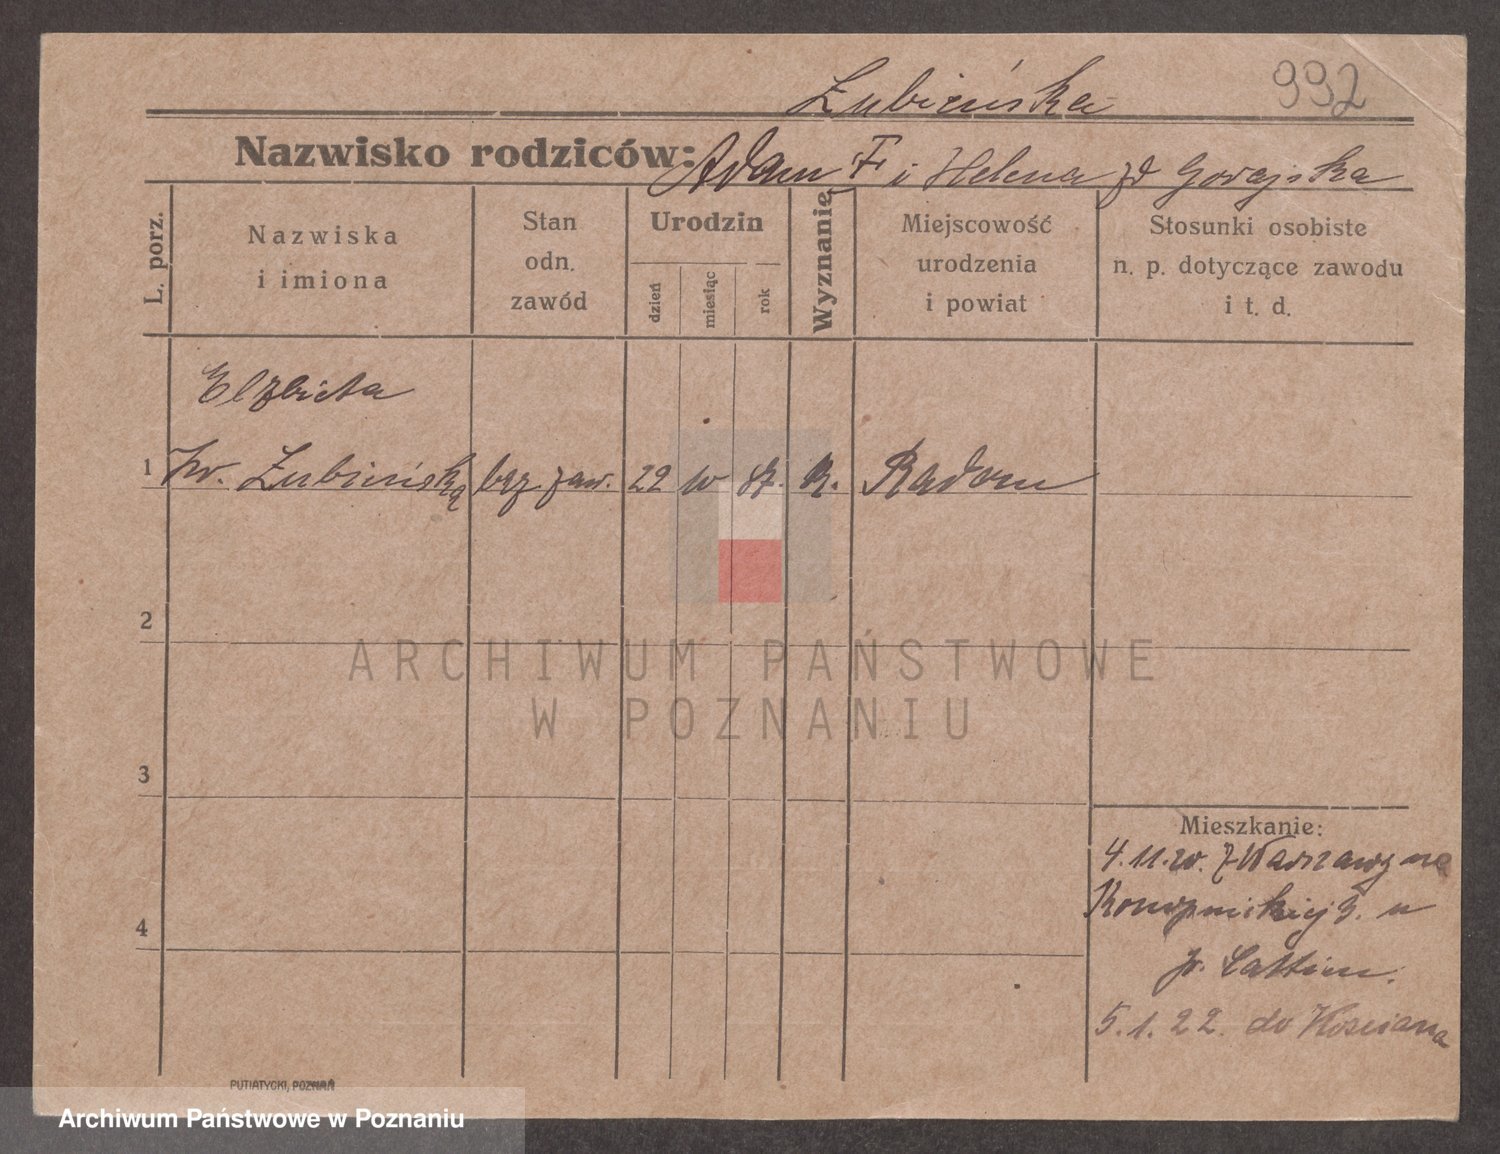 Łubieńska
992
Nazwisko rodziców: Adam F i Helena zd Gorajska
L. porz.
Nazwiska
i imiona
Stan
odn.
zawód
Urodzin
dzień
miesiąc
rok
Wyznanie
Miejscowość
urodzenia
i powiat
Stosunki osobiste
n. p. dotyczące zawodu
i t. d.
Elzbieta
1 hr. Łubieńską bez zaw. 22 10 R. Radom
2
3
4
ARCHIWUM PAŃSTWOWE
W POZNANIU
Mieszkanie:
4.11.20. z Warszawy na
3. u
p.
5.1.22. do Kosciana
PUTIATYCKI, POZNAŃ
Archiwum Państwowe w Poznaniu